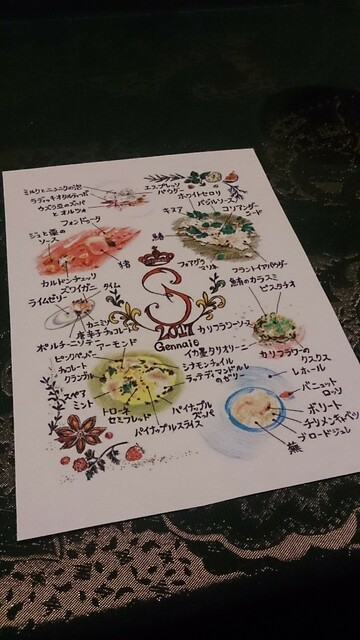 ミルクとニンニクの泡
ラディッキオタルティーボ
ウズラ豆のズッパ
とオルツォ
フォンドゥータ
エスプレッソ
パウダー
ホワイトセロリ
バジルソース
キヌア
コリアンダー
シード
ソース
猪
フォアグラ
マリネ
カルドンチェッリ
ズワイガニ
タイム
ライムゼリー
カニミソ
唐辛子チョコレート
ポルチーニリ
アーモンド
S
2017
Gennaio
カリフラワーソース
フラントイアパウダー
鯖のカラスミ
ピスタチオ
ピンクペッパー
チョコレート
クランブル
スペアミント
トローネ
セミフレッド
パイナップル
ズッパ
パイナップルスライス
イカ墨タリオリーニ
シナモンオイル
のゼリー
カリフラワーの
クスクス
レホール
パニェット
ロッソ
ボリート
チリメンキャベツ
ブロードジュレ